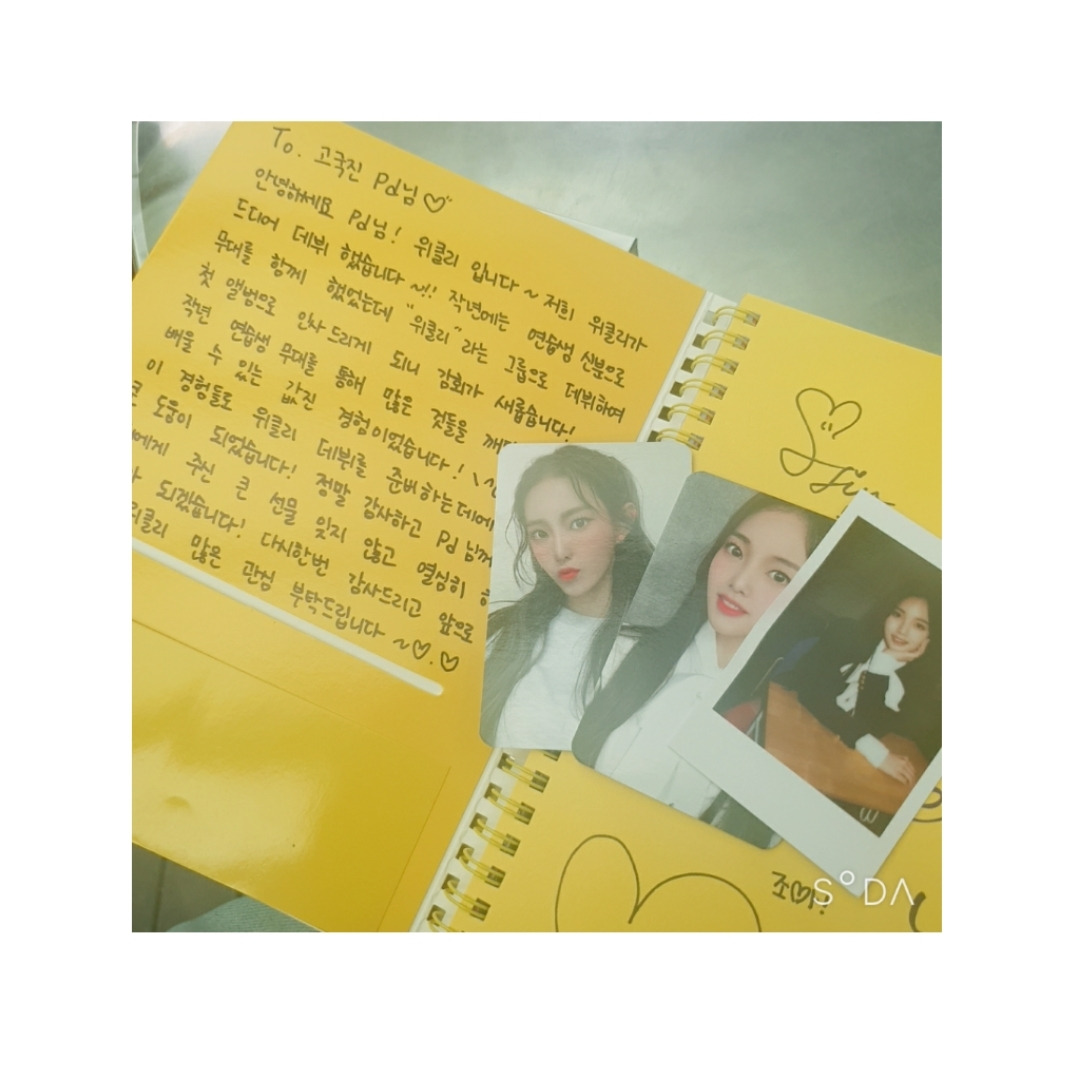 To. 고국진 Pd님♡
안녕하세요 Pd님! 위클리 입니다~ 저희 위클리가
드디어 데뷔 했습니다~!! 작년에는 연습생 신분으로
무대를 함께 했었는데 "위클리"라는 그룹으로 데뷔하여
첫 앨범으로 인사드리게 되니 감회가 새롭습니다!
작년 연습생 무대를 통해 많은 것들을
배울 수 있는 값진 경험이었습니다!
이 경험들로 위클리 데뷔를 준비하는데에
도움이 되었습니다! 정말 감사하고 Pd님께
주신 큰 선물 잊지 않고 열심히
되겠습니다! 다시한번 감사드리고 앞으로
많은 관심 부탁드립니다~♡.♡
SODA